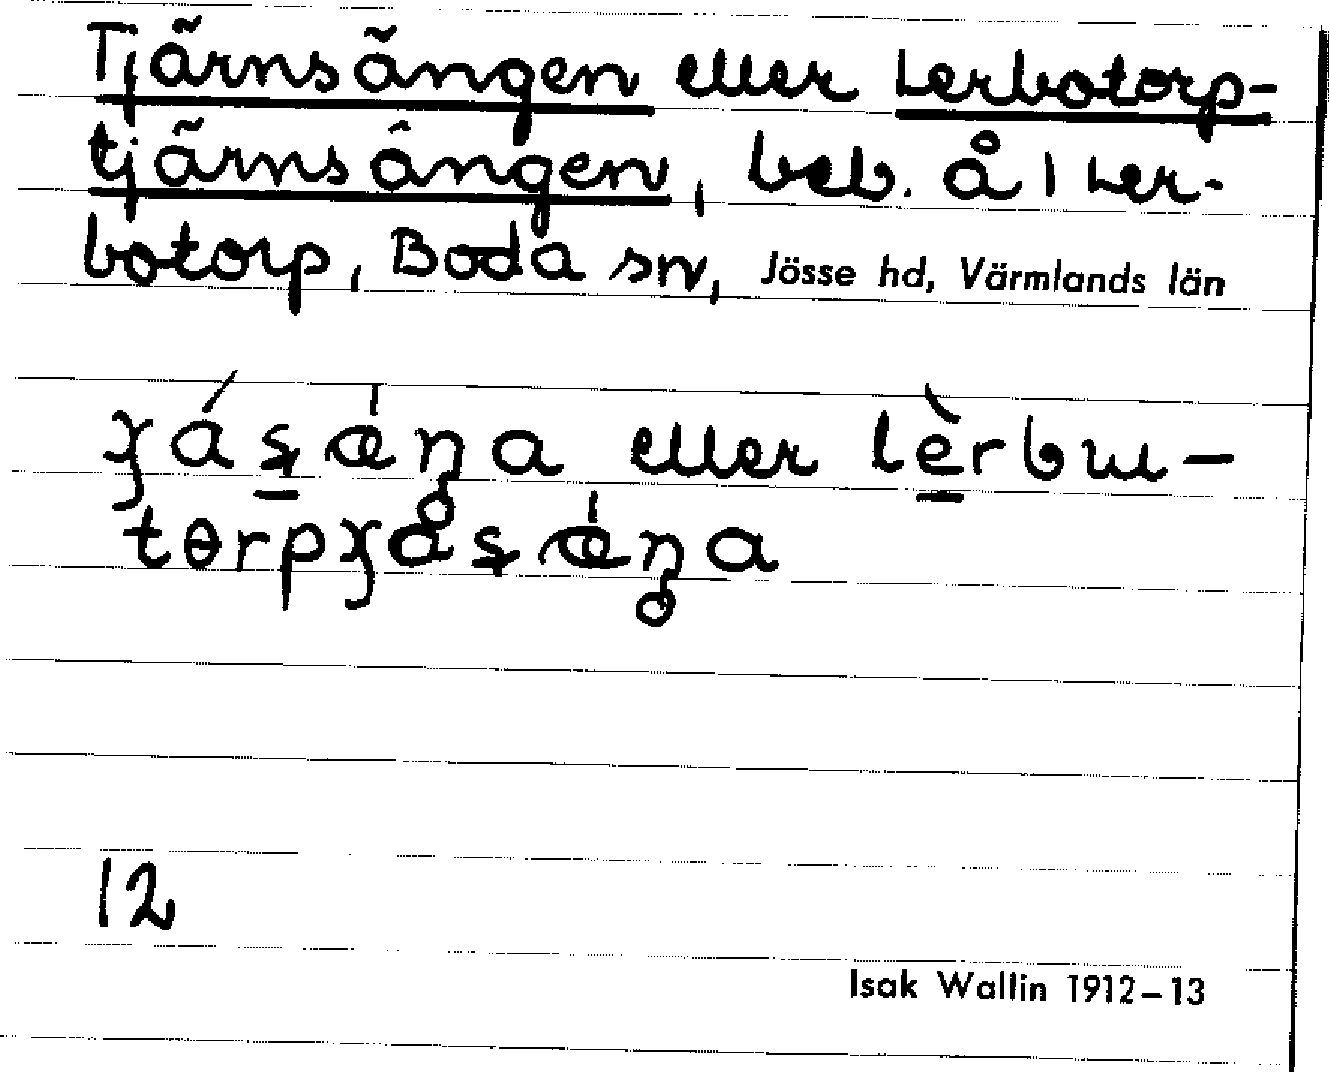 Tjärnsängen eller Lerbotorp-
tjärnsängen, beb. å 1 Ler-
botorp, Boda sn, Jösse hd, Värmlands län
eller
12
Isak Wallin 1912–13